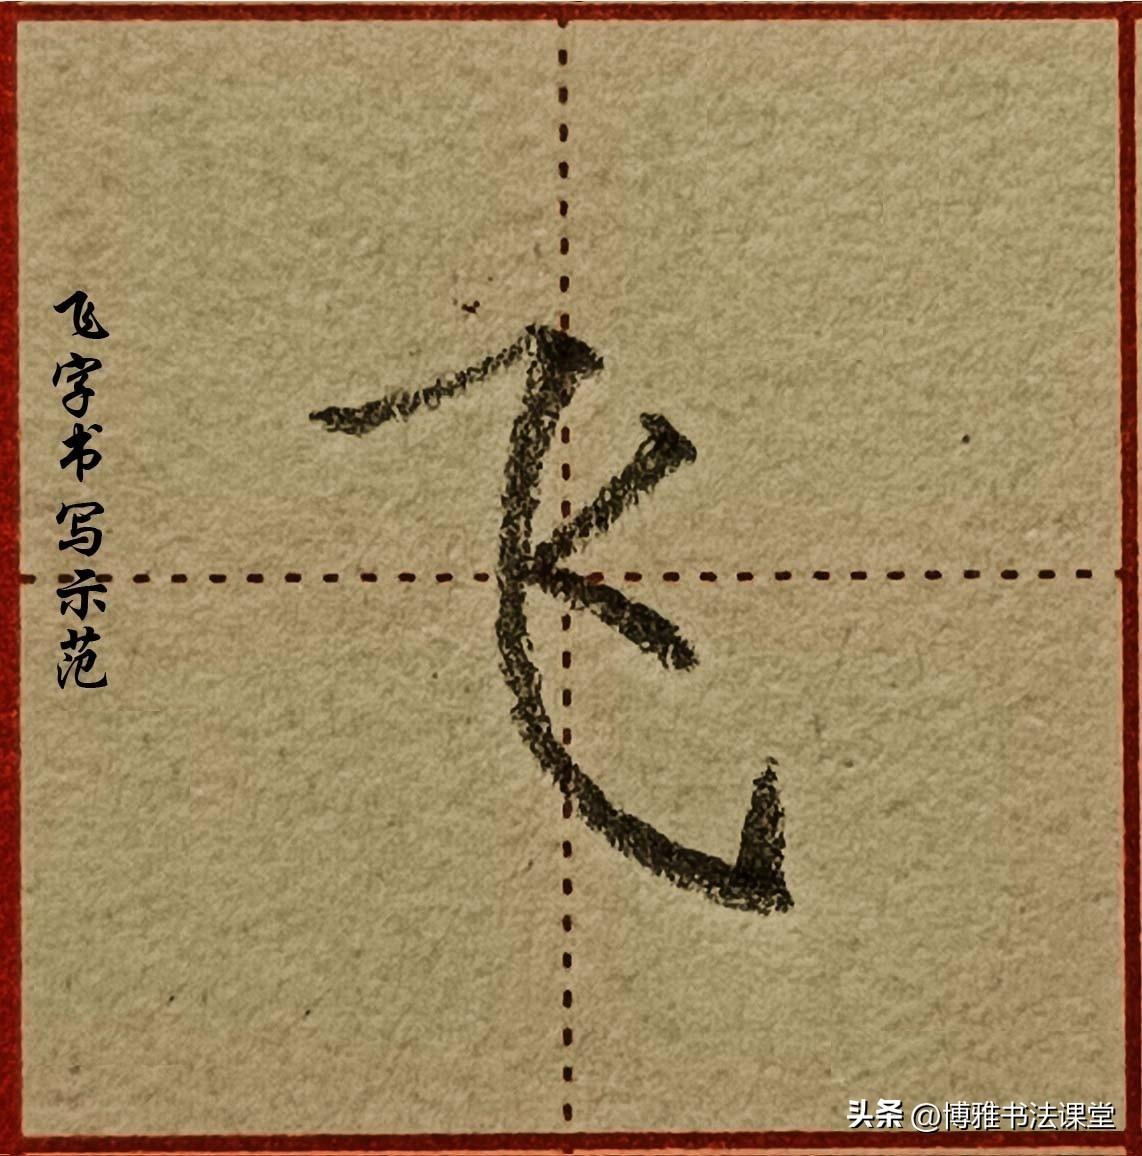 飞字书写示范
飞
头条 @博雅书法课堂